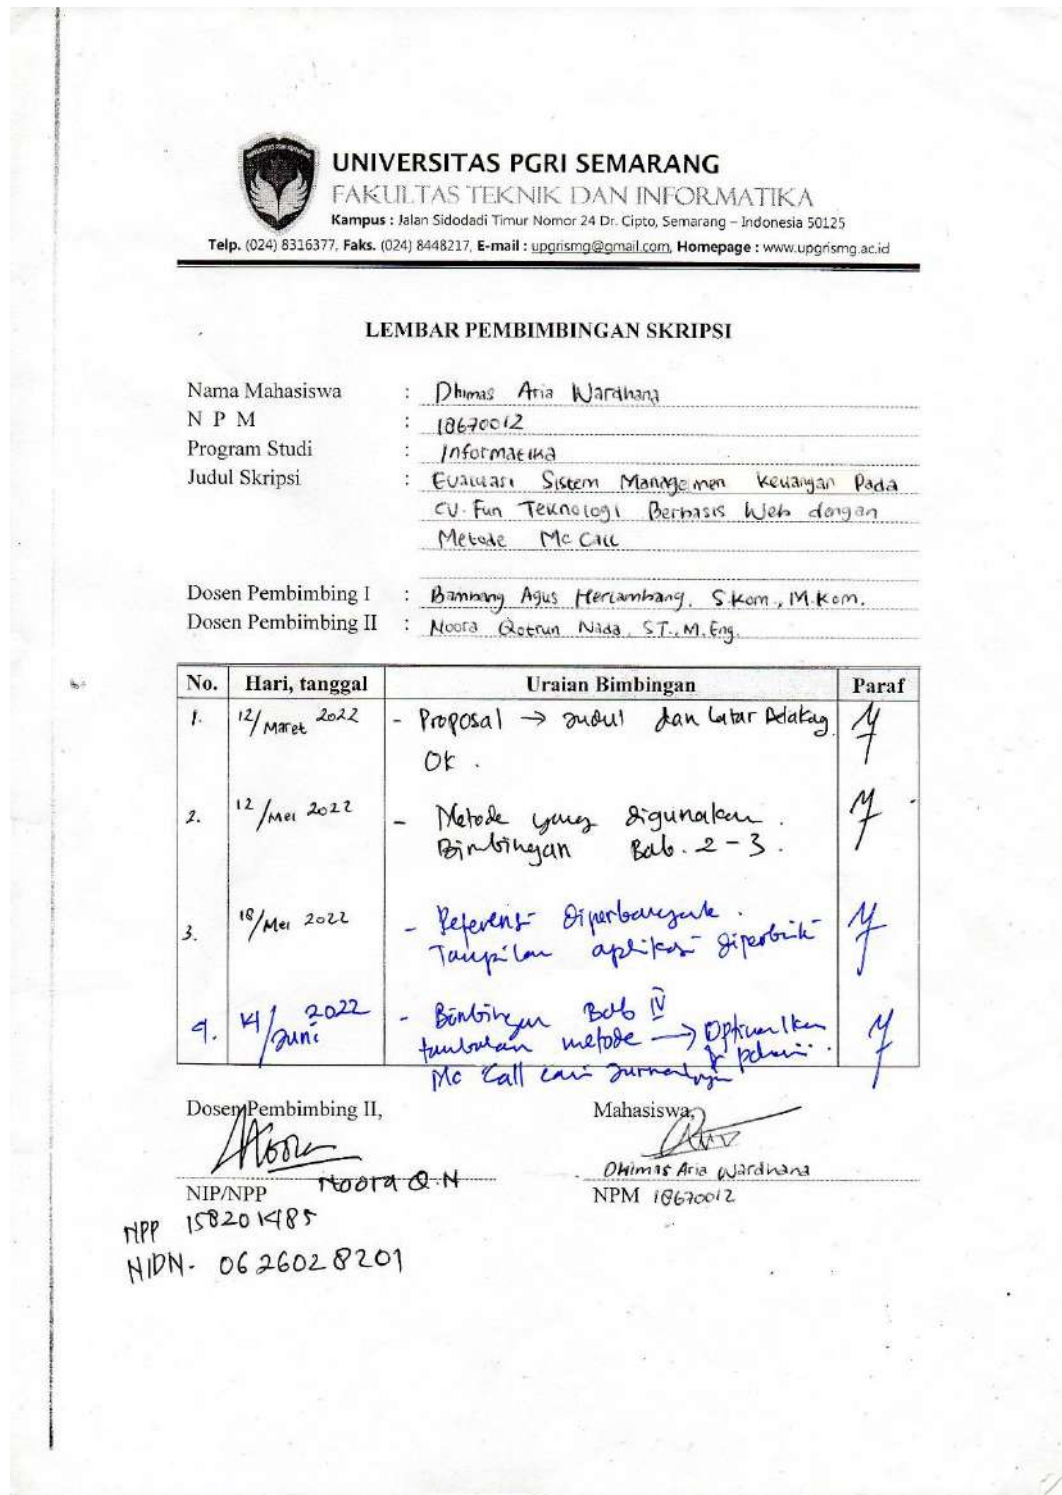 UNIVERSITAS PGRI SEMARANG
FAKULTAS TEKNIK DAN INFORMATIKA
Kampus : Jalan Sidodadi Timur Nomor 24 Dr. Cipto, Semarang – Indonesia 50125
Telp. (024) 8316377, Faks. (024) 8448217, E-mail : upgrismg@gmail.com, Homepage : www.upgrismg.ac.id
LEMBAR PEMBIMBINGAN SKRIPSI
Nama Mahasiswa : Dhimas Aria Wardhana
N P M : 18670012
Program Studi : Informatika
Judul Skripsi : Evaluasi Sistem Managemen Keuangan Pada
CV. Fun Teknologi Berbasis Web dengan
Metode Mc Call
Dosen Pembimbing I : Bambang Agus Herlambang, S.Kom., M.Kom.
Dosen Pembimbing II : Noora Qotrun Nada, ST., M.Eng.
No. Hari, tanggal Uraian Bimbingan Paraf
1. 12/Maret 2022 - Proposal → Judul dan Latar Belakag
Ok .
2. 12/Mei 2022 - Metode yang digunakan .
Bimbingan Bab. 2-3 .
3. 18/Mei 2022 - Referensi diperbanyak .
Tampilan aplikasi diperbaiki
4. 14/Juni 2022 - Bimbingan Bab IV
tambahan metode → Optimalkan
Mc Call cari Jurnal
Dosen Pembimbing II, Mahasiswa,
Noora Q.N Dhimas Aria Wardhana
NIP/NPP NPM 18670012
NPP 158201485
NIDN. 0626028201